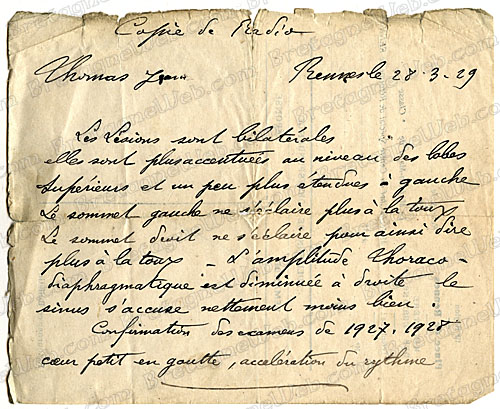 Copie de Radio
Thomas Rennes le 28-3-29
Les Lésions sont bilatérales
elles sont plus accentuées au niveau des lobes
supérieurs et un peu plus étendues à gauche
Le sommet gauche ne s'éclaire plus à la toux
Le sommet droit ne s'éclaire pour ainsi dire
plus à la toux - L'amplitude thoraco-
diaphragmatique est diminuée à droite le
sinus s'accuse nettement moins bien.
Confirmation des examens de 1927-1928
cœur petit en goutte, accélération du rythme